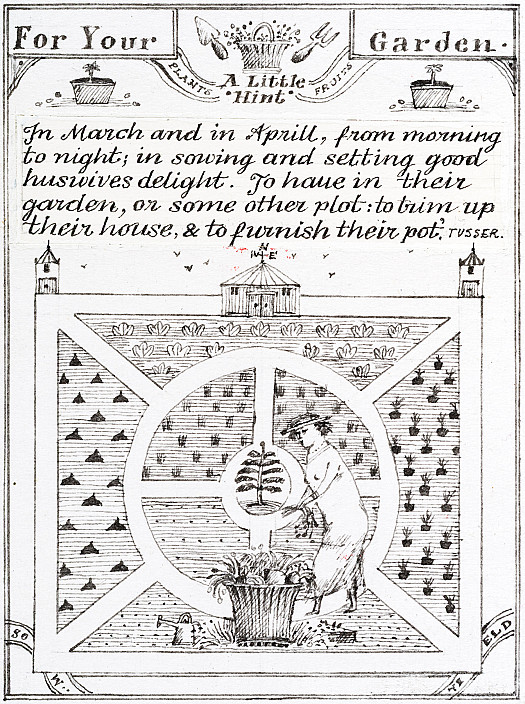 For Your Garden.
PLANTS FRUITS
A Little
"Hint"
In March and in Aprill, from morning
to night; in sowing and setting good
huswives delight. To haue in their
garden, or some other plot: to trim up
their house, & to furnish their pot. TUSSER.
N
W E
ELD